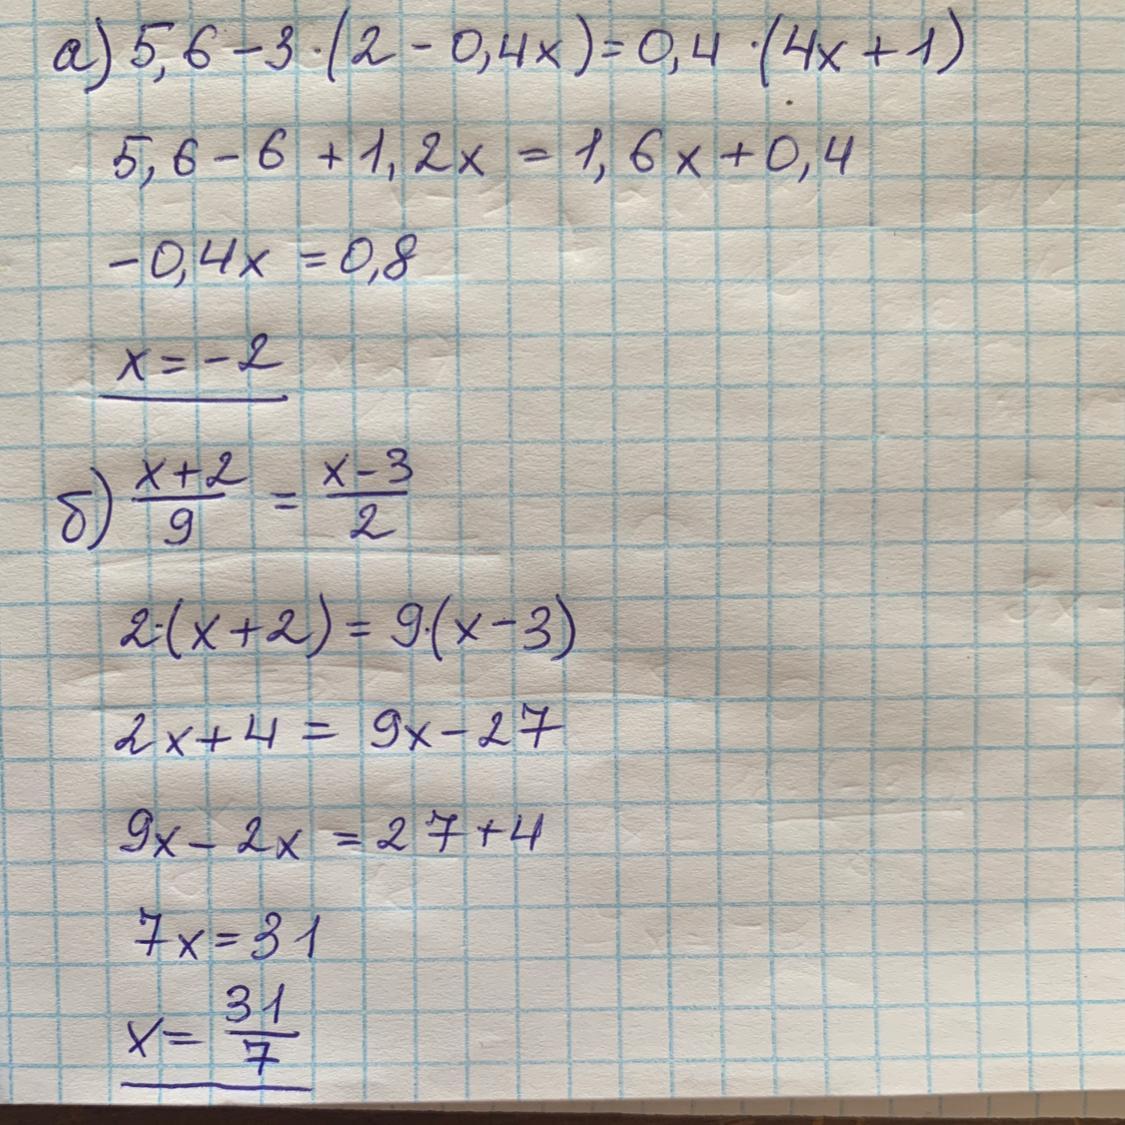 а) 5,6 - 3 · (2 - 0,4x) = 0,4 · (4x + 1)
5,6 - 6 + 1,2x = 1,6x + 0,4
-0,4x = 0,8
x = -2
б) \frac{x+2}{9} = \frac{x-3}{2}
2·(x+2) = 9·(x-3)
2x + 4 = 9x - 27
9x - 2x = 27 + 4
7x = 31
x = \frac{31}{7}